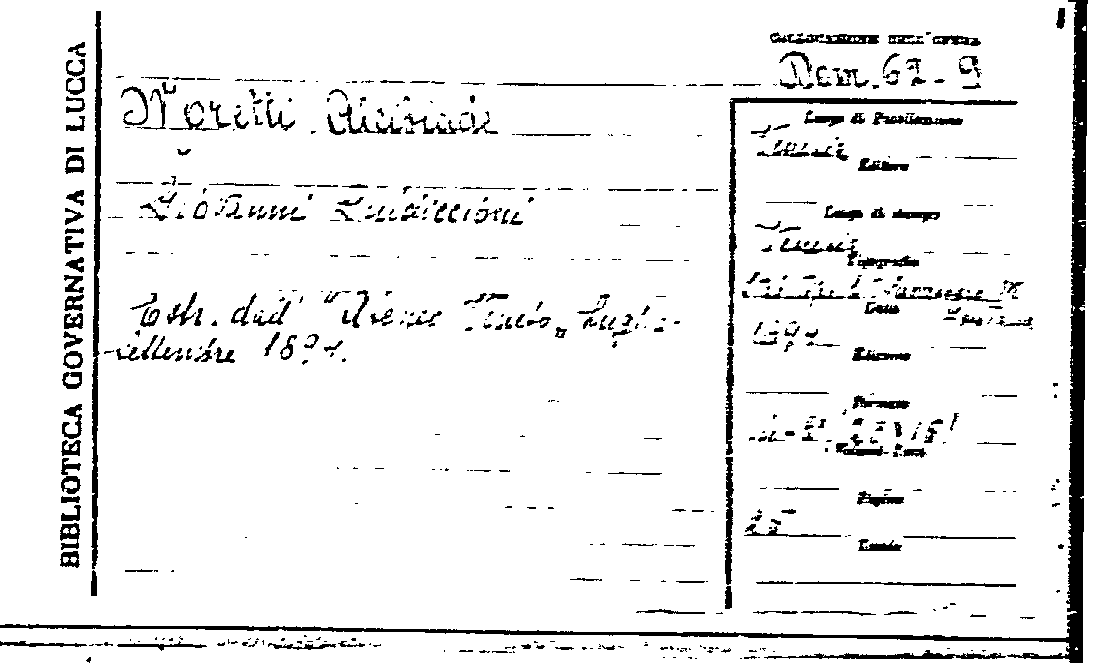 BIBLIOTECA GOVERNATIVA DI LUCCA
COLLOCAZIONE DELL'OPERA
Dom. 67-9
Moretti Alcibiade
Giovanni Guidiccioni
Estr. dall' "Ateneo Veneto„ Luglio-
settembre 189
Luogo di Pubblicazione
Venezia
Editore
Luogo di stampa
Venezia
Tipografia
Data
189
Edizione
Formato
in-8°
Volumi-Parti
Pagine
25
Tavole